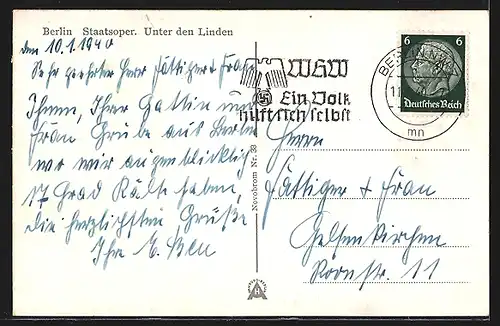 Berlin Staatsoper. Unter den Linden
den 10.1.1940
Sehr geehrter Herr Fättiger & Frau
Ihnen, Ihrer Gattin und
Frau Grube aus Berlin
wo wir augenblicklich
17 Grad Kälte haben,
die herzlichsten Grüße
Ihre E.
WHW
Ein Volk
hilft sich selbst
BERLIN
mn
6 6
Deutsches Reich
Novobrom Nr. 38
Herrn
Fättiger & Frau
Gelsenkirchen
Roonstr. 11